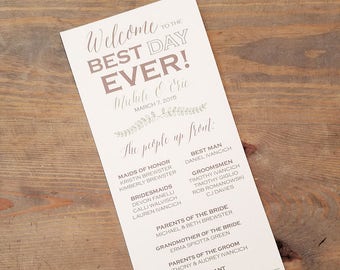 Welcome TO THE
BEST DAY
EVER!
Michele & Eric
MARCH 7, 2015
The people up front:
MAIDS OF HONOR
KRISTIN BREWSTER
KIMBERLY BREWSTER
BRIDESMAIDS
DEVON FANELLI
CALLI WALVISCH
LAUREN IVANCICH
BEST MAN
DANIEL IVANCICH
GROOMSMEN
TIMOTHY IVANCICH
TIMOTHY GIGLIO
ROB ROMANOWSKI
CJ DAVIES
PARENTS OF THE BRIDE
& BETH BREWSTER
GRANDMOTHER OF THE BRIDE
ERMA SPIOTTA GREEN
PARENTS OF THE GROOM
ANTHONY & AUDREY IVANCICH